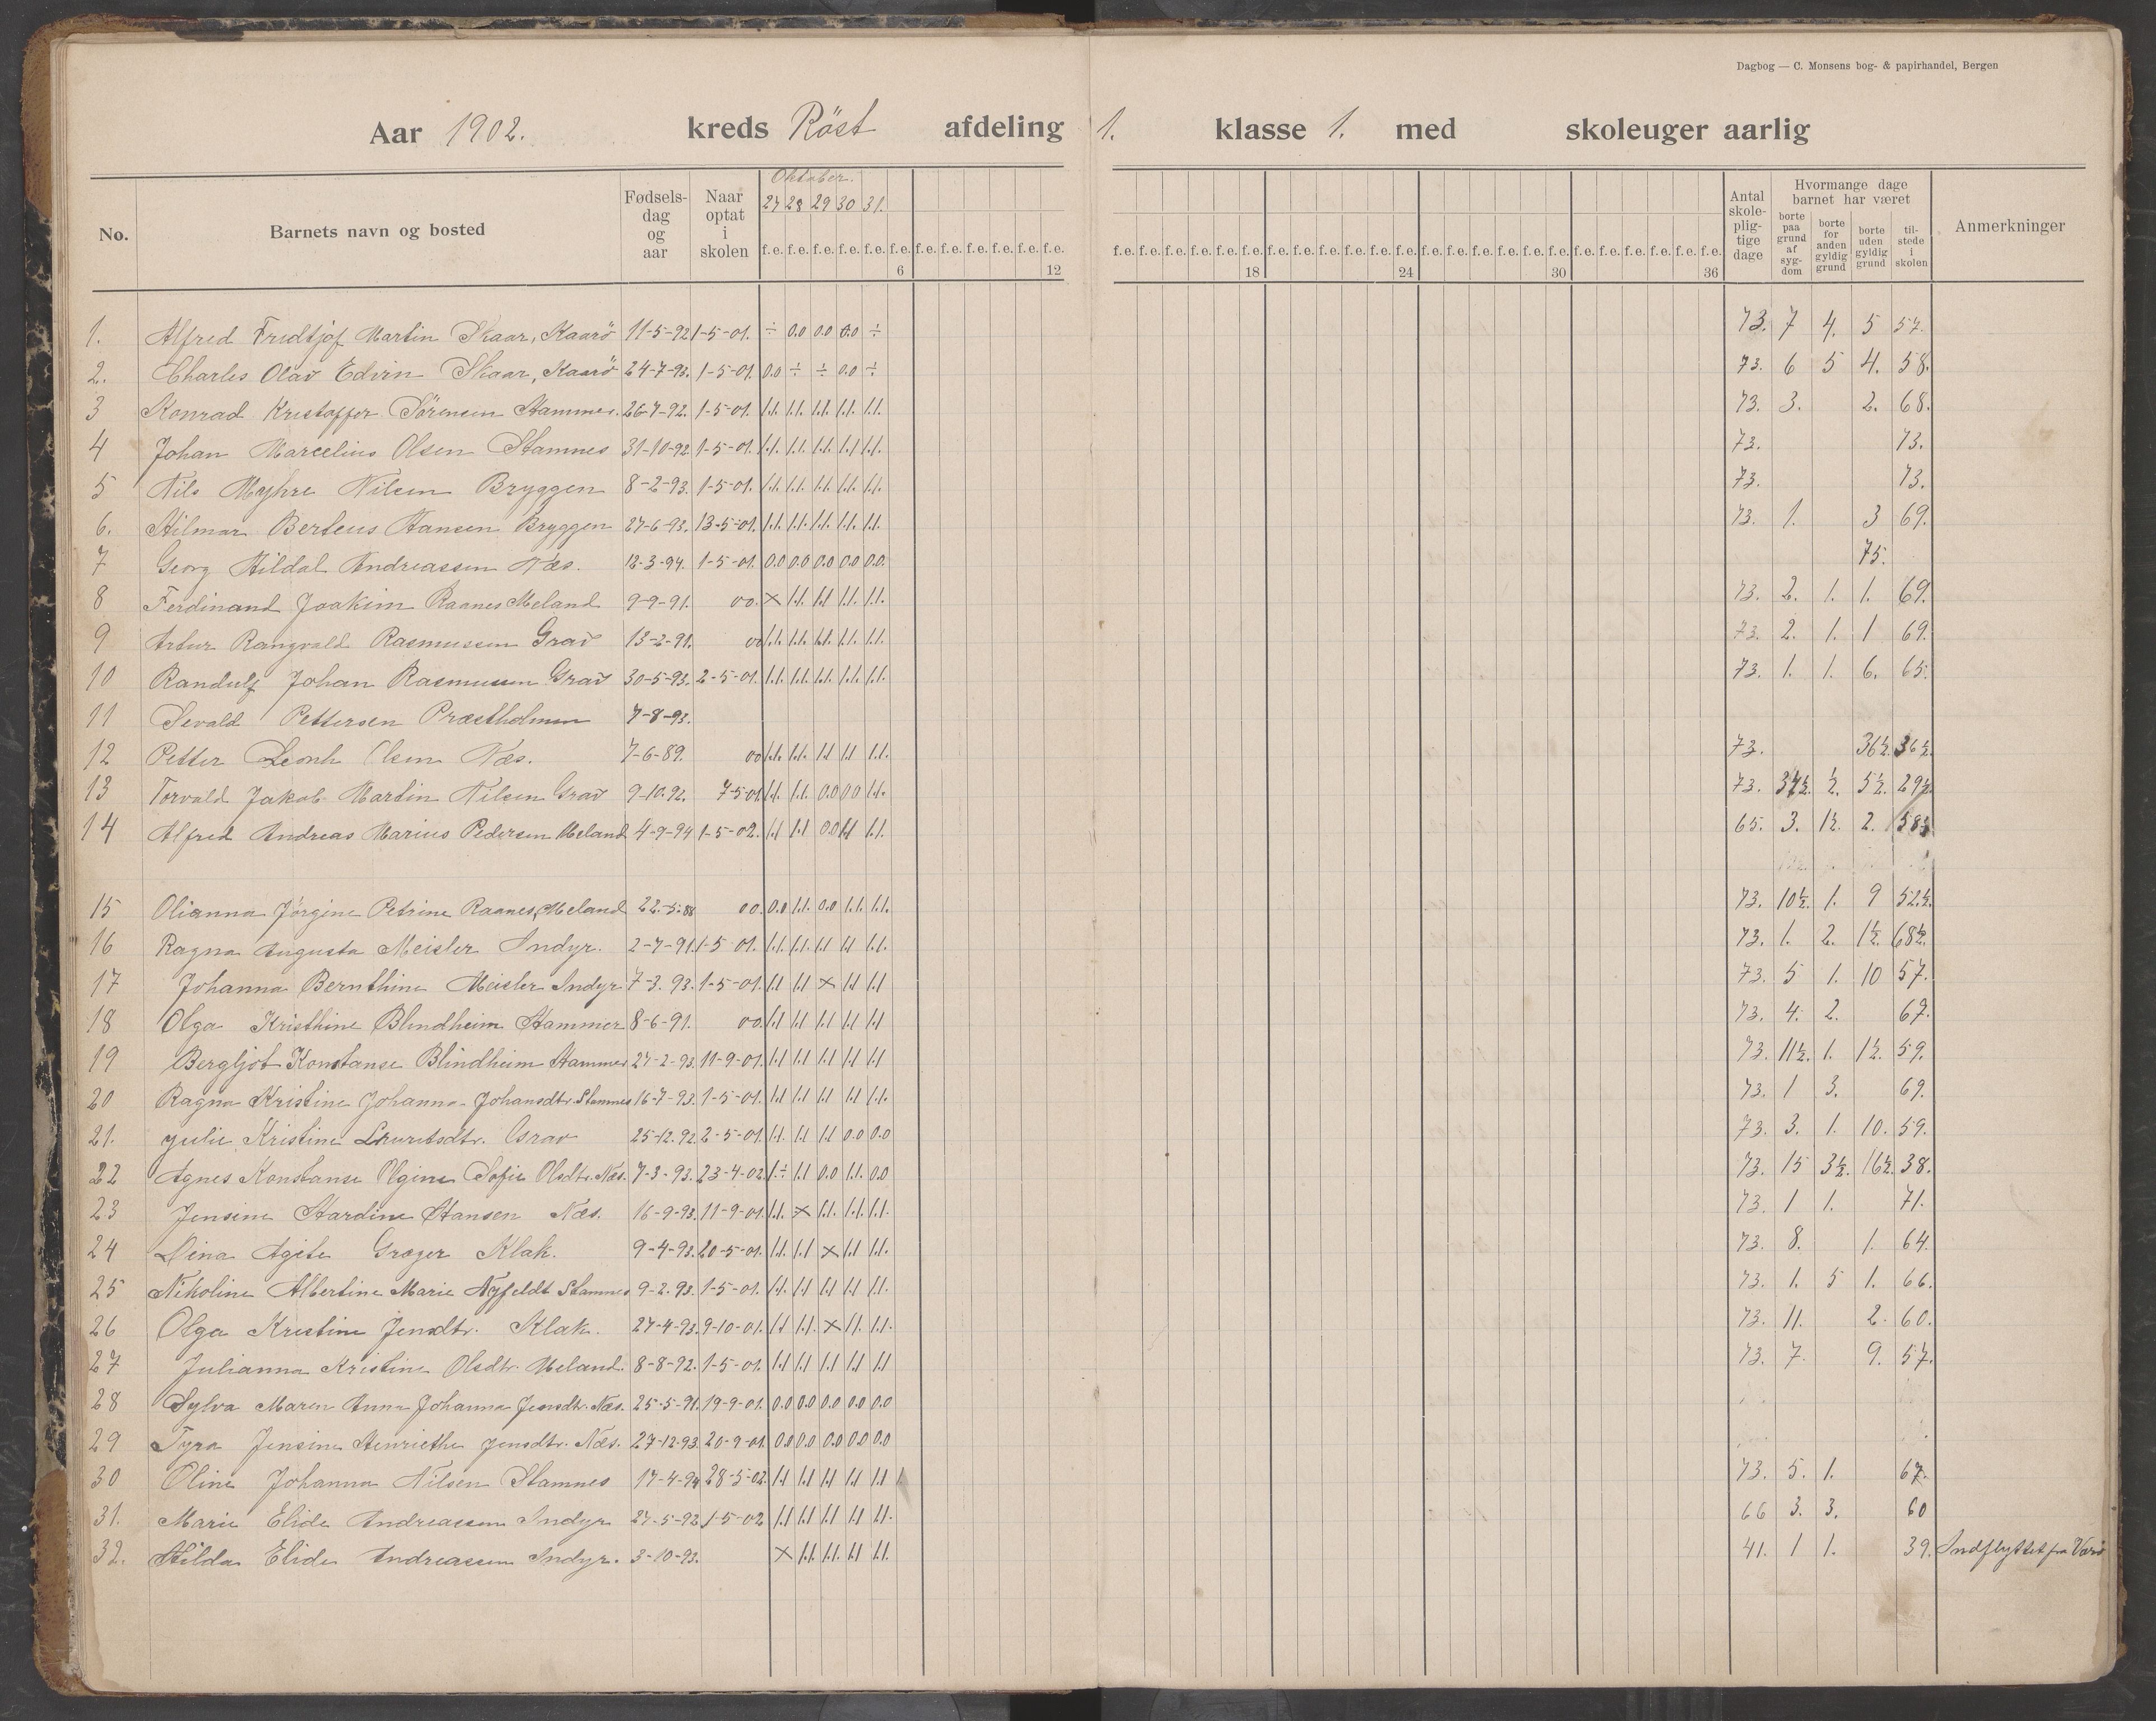 Dagbog — C. Monsens bog- & papirhandel, Bergen
Aar 1902. kreds Röst afdeling 1. klasse 1. med skoleuger aarlig
No. Barnets navn og bosted Fødselsdag og aar Naar optat i skolen Oktober. 27 28 29 30 31. Antal skolepligtige dage Hvormange dage barnet har været borte paa grund af sygdom borte for anden gyldig grund borte uden gyldig grund tilstede i skolen Anmerkninger
f.e. f.e. f.e. f.e. f.e. f.e. f.e. f.e. f.e. f.e. f.e. f.e. f.e. f.e. f.e. f.e. f.e. f.e. f.e. f.e. f.e. f.e. f.e. f.e. f.e. f.e. f.e. f.e. f.e. f.e. f.e. f.e. f.e. f.e. f.e. f.e.
6 12 18 24 30 36
1. Alfred Fredtjof Martin Skaar, Kaarö 11-5-92 1-5-01. ÷ 0.0 0.0 0.0 ÷ 73. 7 4. 5 57.
2. Charles Olav Edvin Skaar, Kaarö 24-7-93. 1-5-01. 0.0 ÷ ÷ 0.0 ÷ 73. 6 5 4. 58.
3 Konrad Kristoffer Sörensen Stammes. 26-7-92. 1-5-01. 1.1. 1.1. 1.1. 1.1. 1.1. 73. 3. 2. 68.
4 Johan Marcelius Olsen Stamnes 31-10-92 1-5-01. 1.1. 1.1. 1.1. 1.1 1.1. 73. 73.
5 Nils Myhre Nilsen Bryggen 8-2-93. 1-5-01. 1.1. 1.1. 1.1. 1.1. 1.1. 73. 73.
6. Hilmar Berteus Hansen Bryggen 27-6-93. 13-5-01. 1.1. 1.1. 1.1. 1.1. 1.1. 73. 1. 3 69.
7 Georg Hildal Andreassen Næs. 12-3-94. 1-5-01. 0.0 0.0 0.0 0.0 0.0. 75.
8 Ferdinand Joakim Raanes Meland 9-9-91. 00. × 1.1. 1.1 1.1. 1.1. 73. 2. 1. 1. 69.
9 Artur Rangvald Rasmussen Grav 13-2-91. 00 1.1. 1.1. 1.1. 1.1. 1.1. 73. 2. 1. 1 69.
10 Randulf Johan Rasmussen Grav 30-5-93. 2-5-01. 1.1. 1.1. 1.1. 1.1. 1.1. 73. 1. 1. 6. 65.
11 Sevald Pettersen Præstholmen 7-8-93.
12 Petter Leonh Olsen Næs. 7-6-89. 00 1.1. 1.1. 1.1 1.1 1.1. 73. 36½. 36½.
13 Torvald Jakob Martin Nilsen Grav 9-10.92. 7-5-01 1.1. 1.1. 0.0 0.0 1.1. 73. 37½. ½. 5½. 29½.
14 Alfred Andreas Marius Pedersen Meland 4-9-94 1-5-02. 1.1 1.1 0.0 1.1 1.1. 65. 3. 1½. 2. 58½
15 Olianna Jörgine Petrine Raanes, Meland 22-5-88 00. 0.0 1.1. 0.0 1.1. 1.1. 73. 10½. 1. 9 52½.
16 Ragna Augusta Meisler Indyr. 2-7-91. 1-5 01. 1.1. 1.1. 1.1 1.1 1.1. 73. 1. 2. 1½. 68½.
17 Johanna Bernthine Meisler Indyr 7-3. 93. 1-5-01. 1.1 1.1 × 1.1 1.1 73. 5 1. 10 57.
18 Olga Kristhine Blindheim Stammer 8-6-91. 00. 1.1 1.1 1.1 1.1 1.1 73. 4. 2. 67.
19 Bergljot Konstanse Blindheim Stammer 27-2-93. 11-9-01. 1.1 1.1 1.1 1.1 1.1 73. 11½. 1. 1½. 59.
20 Ragna Kristine Johanna Johansdtr. Stamnes 16-7-93. 1-5-01. 1.1 1.1 1.1 1.1 1.1. 73. 1 3. 69.
21. Julie Kristine Lauritsdtr. Grav 25-12.92. 2-5-01. 1.1. 1.1 1.1 0.0 0.0 73. 3. 1. 10. 59.
22 Agnes Konstanse Olgine Sofie Olsdtr. Næs. 7-3-93. 23-4-02. 1.÷ 1.1 0.0 1.1. 0.0 73. 15 3½. 16½. 38.
23 Jensine Hardine Hansen Næs. 16-9-93. 11-9-01. 1.1. × 1.1. 1.1. 1.1. 73. 1 1. 71.
24 Dina Agite Grøger Klak. 9-4-93. 20-5-01. 1.1. 1.1 × 1.1 1.1. 73. 8. 1. 64.
25 Nikoline Albertine Marie Nyfeldt Stamnes 9-2.93. 1-5-01. 1.1. 1.1 1.1 1.1 1.1. 73. 1. 5 1. 66.
26 Olga Kristine Jensdtr. Klak. 27-4-93. 9-10-01. 1.1 1.1. × 1.1. 1.1. 73. 11. 2. 60.
27 Julianna Kristine Olsdtr. Meland. 8-8-92. 1-5-01. 1.1 1.1 1.1 1.1 1.1 73. 7. 9. 57.
28 Sylva Maren Anna Johanna Jensdtr. Næs. 25-5-91. 19-9-01. 0.0 0.0 0.0 0.0 0.0
29 Tyra Jensine Henriethe Jensdtr. Næs. 27-12-93. 20-9-01. 0.0 0.0 0.0 0.0 0.0
30 Oline Johanna Nilsen Stamnes 17-4-94 28-5-02. 1.1 1.1 1.1 1.1 1.1 73. 5. 1. 67.
31. Marie Elide Andreassen Indyr 27-5-92 1-5-02 1.1 1.1 1.1 1.1 1.1. 66 3. 3. 60
32. Hilda Elide Andreassen Indyr. 3-10-93. × 1.1. 1.1. 1.1 1.1. 41. 1 1. 39. Indflyttet fra Værö